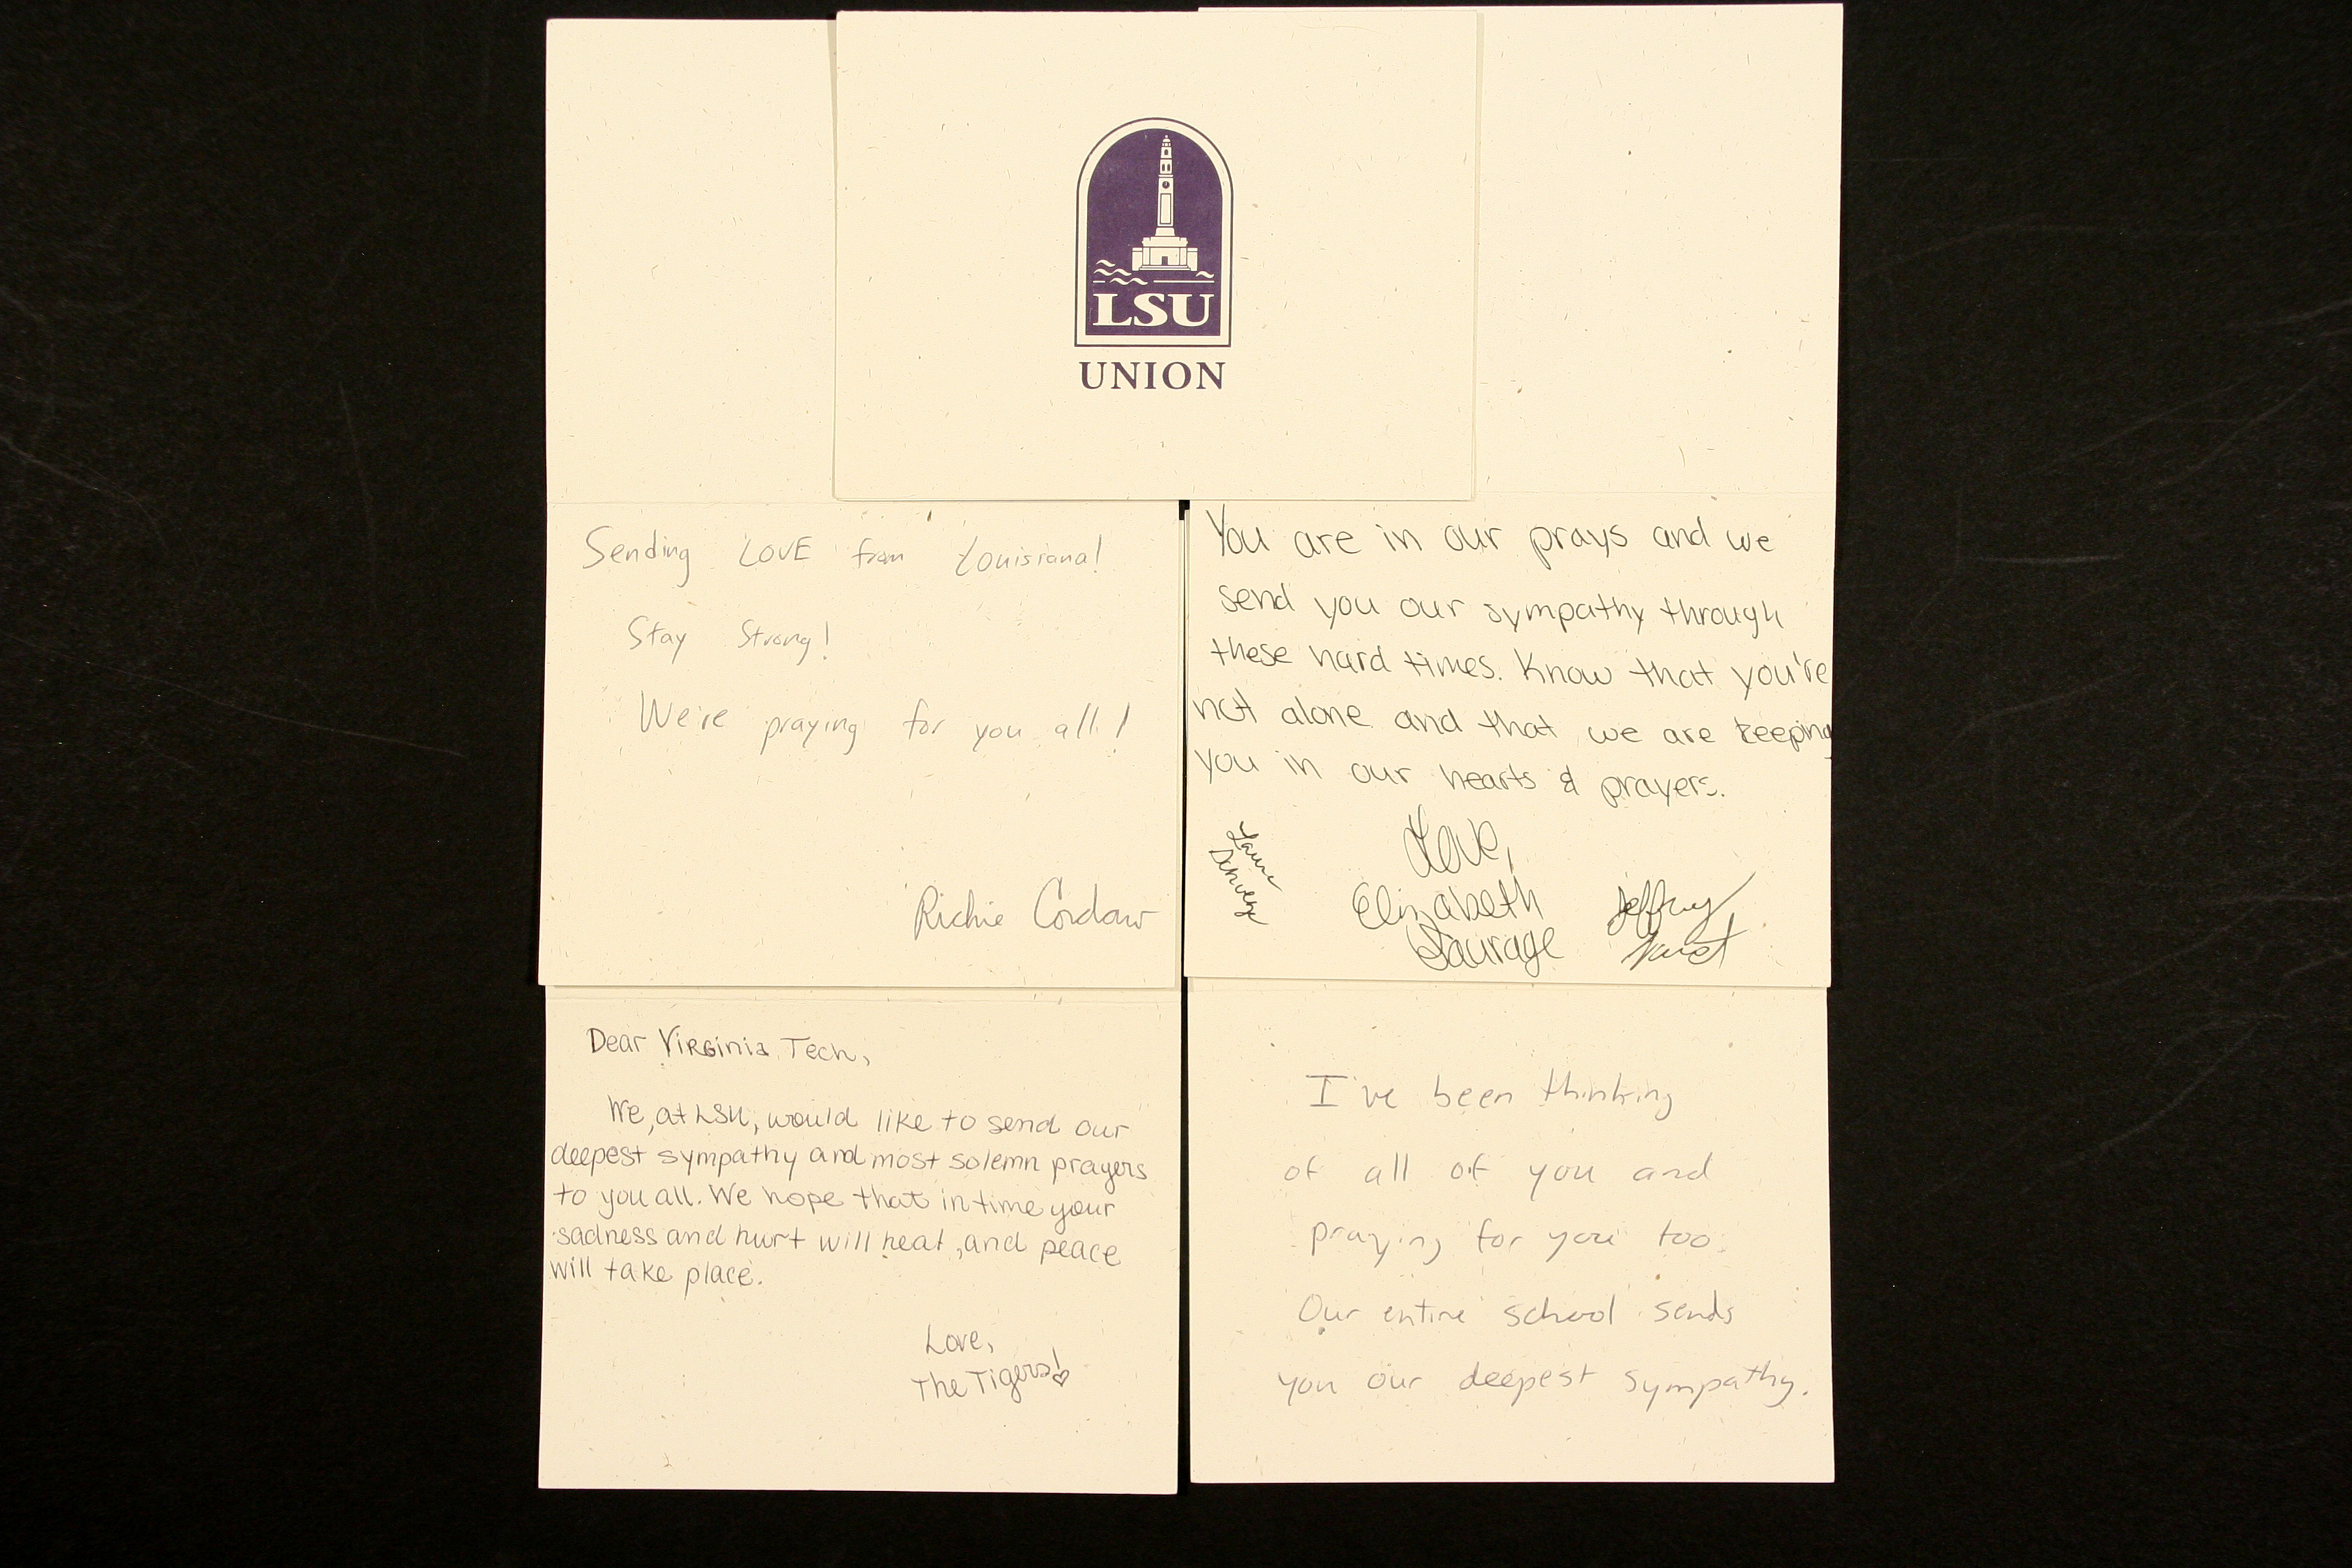 LSU
UNION
Sending LOVE from Louisiana!
Stay Strong!
We're praying for you all!
Richie
You are in our prays and we
send you our sympathy through
these hard times. Know that you're
not alone and that we are keeping
you in our hearts & prayers.
Love,
Elizabeth
Saurage
Jeffrey
Dear Virginia Tech,
We, at LSU, would like to send our
deepest sympathy and most solemn prayers
to you all. We hope that in time your
sadness and hurt will heal, and peace
will take place.
Love,
The Tigers!
I've been thinking
of all of you and
praying for you too.
Our entire school sends
you our deepest sympathy.